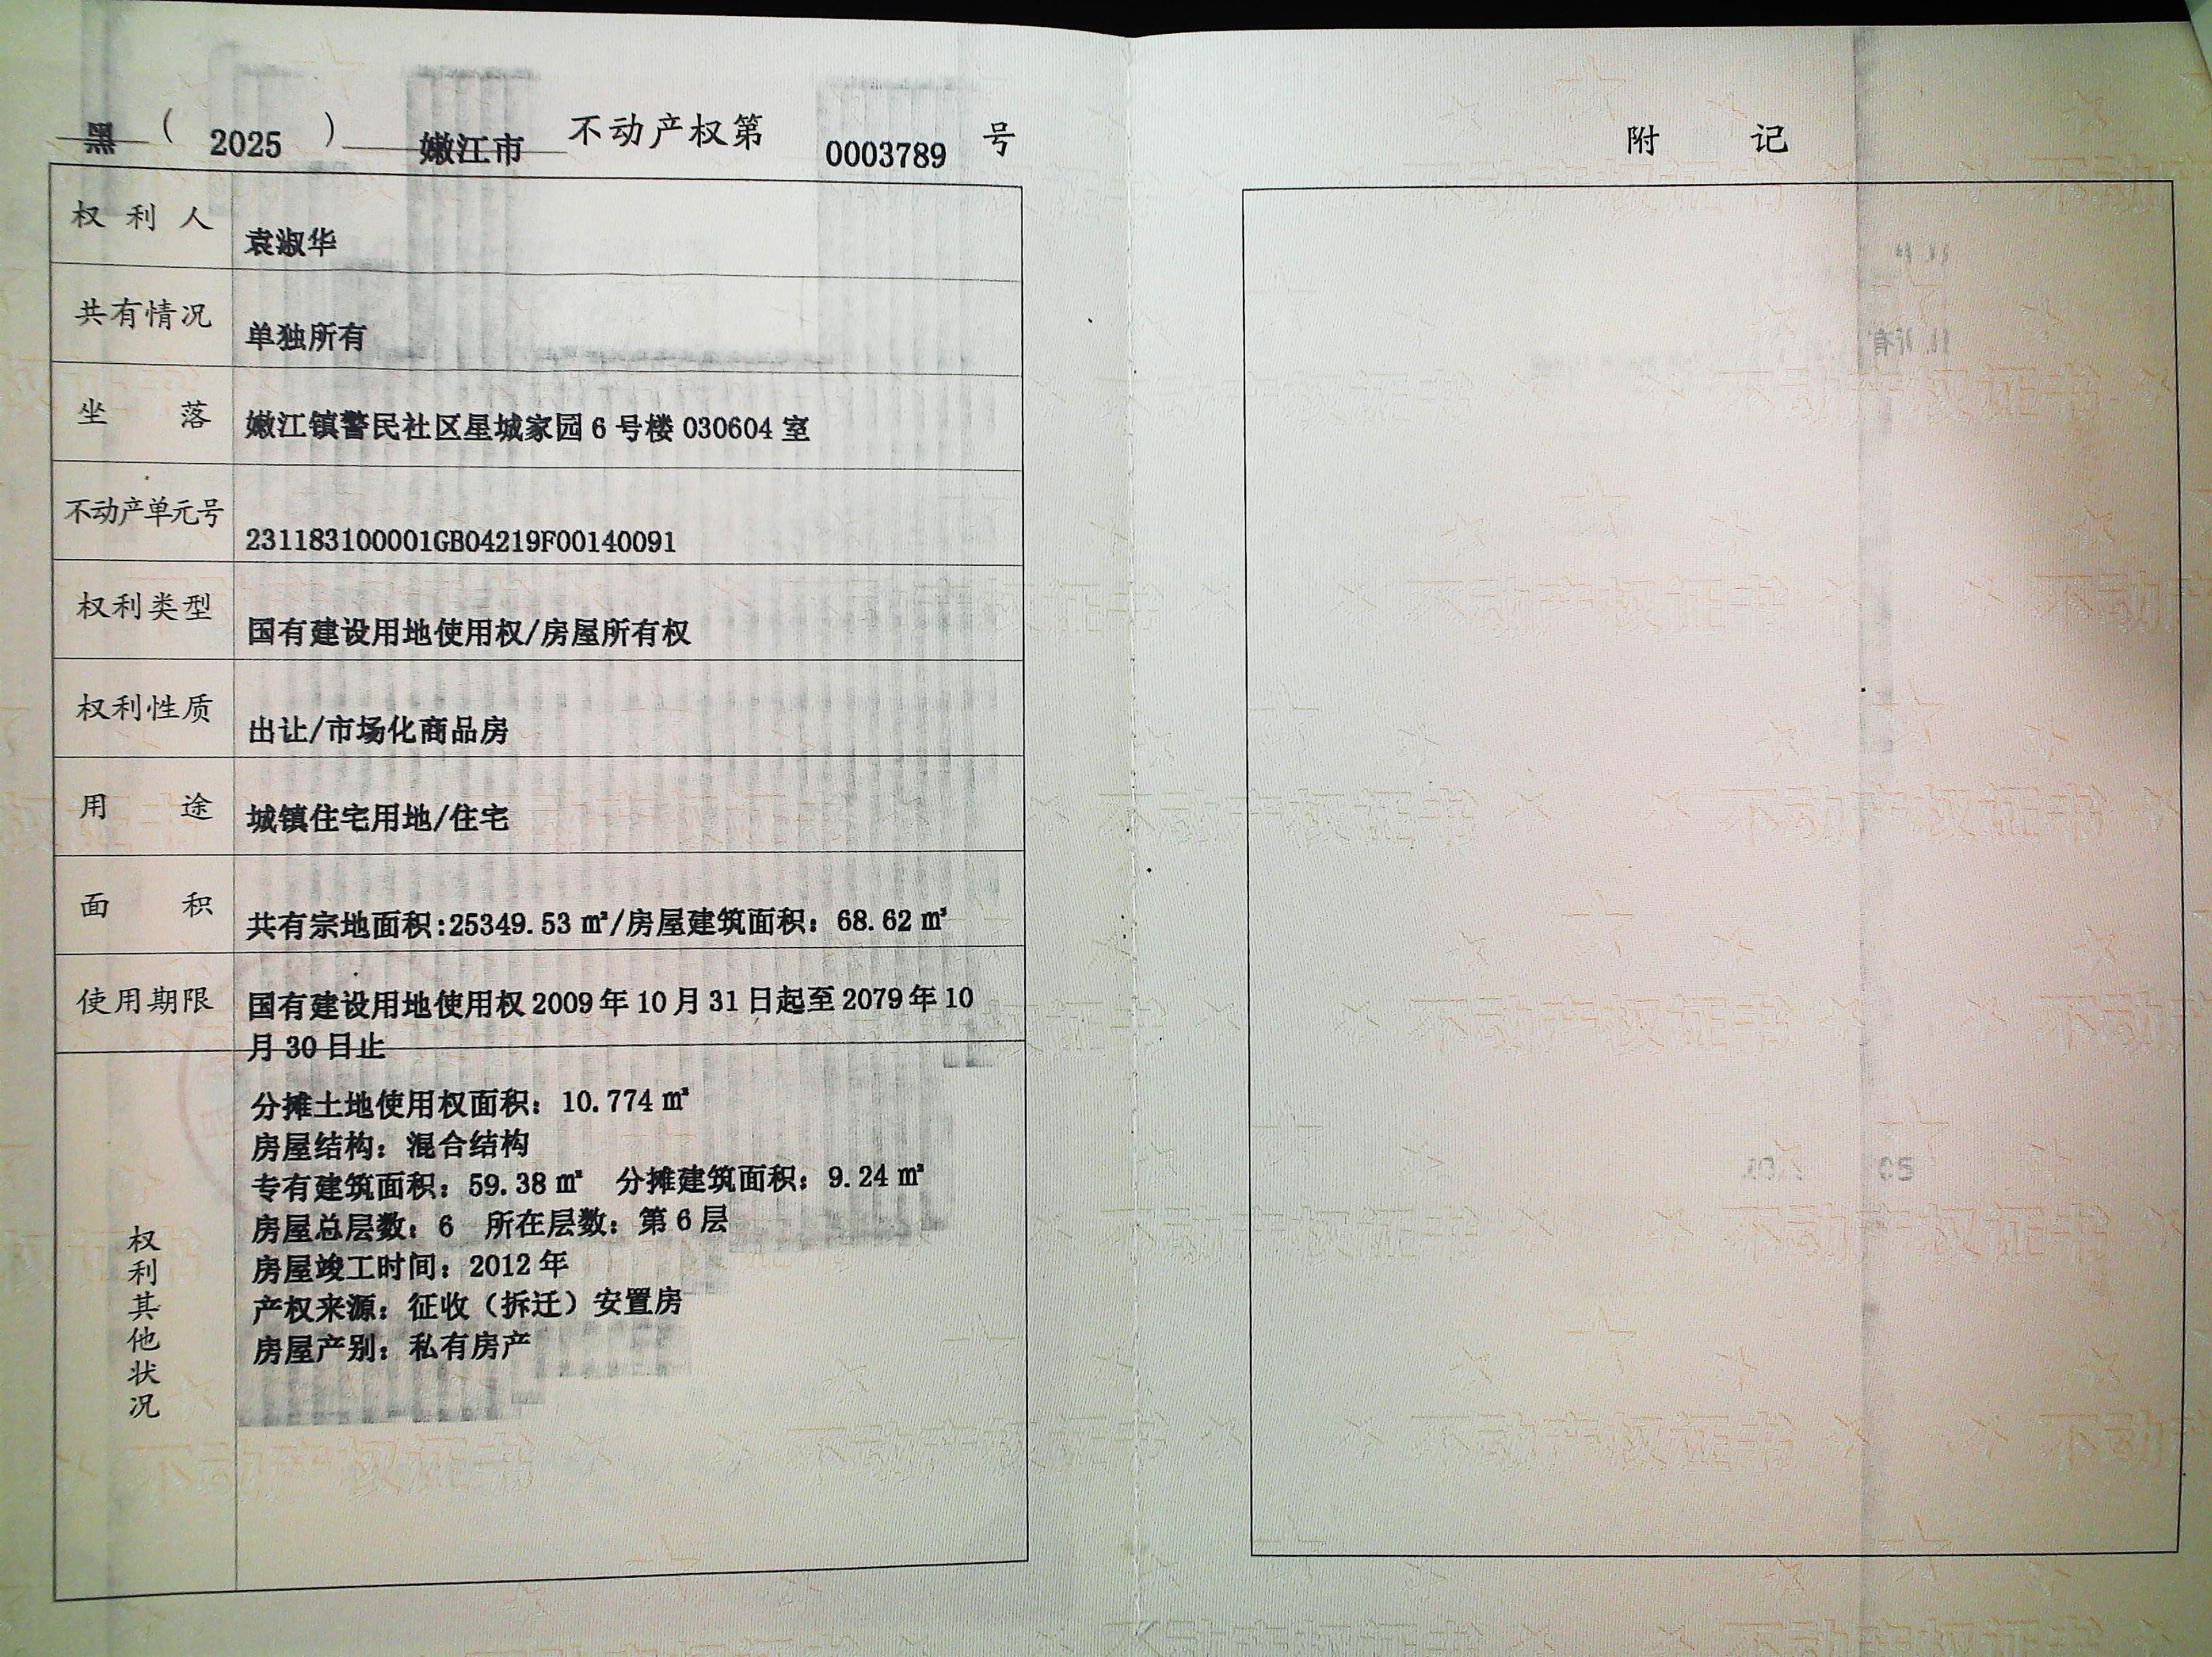 黑（2025）嫩江市不动产权第0003789号
权利人 袁淑华
共有情况 单独所有
坐落 嫩江镇警民社区星城家园6号楼030604室
不动产单元号 231183100001GB04219F00140091
权利类型 国有建设用地使用权/房屋所有权
权利性质 出让/市场化商品房
用途 城镇住宅用地/住宅
面积 共有宗地面积:25349.53㎡/房屋建筑面积：68.62㎡
使用期限 国有建设用地使用权2009年10月31日起至2079年10
月30日止
权利其他状况
分摊土地使用权面积：10.774㎡
房屋结构：混合结构
专有建筑面积：59.38㎡ 分摊建筑面积：9.24㎡
房屋总层数：6 所在层数：第6层
房屋竣工时间：2012年
产权来源：征收（拆迁）安置房
房屋产别：私有房产
附记